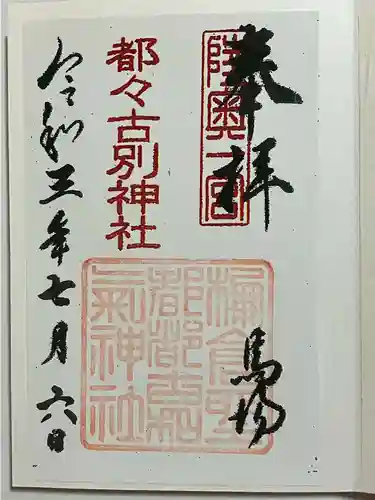 奉拝
陸奥一宮
馬場
都々古別神社
令和三年七月六日